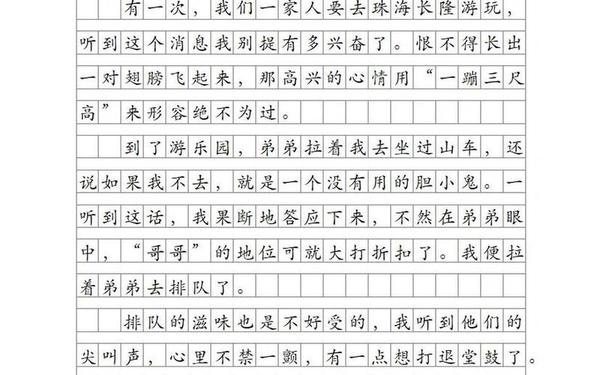 有一次，我们一家人要去珠海长隆游玩，
听到这个消息我别提有多兴奋了。恨不得长出
一对翅膀飞起来，那高兴的心情用“一蹦三尺
高”来形容绝不为过。
到了游乐园，弟弟拉着我去坐过山车，还
说如果我不去，就是一个没有用的胆小鬼。一
听到这话，我果断地答应下来，不然在弟弟眼
中，“哥哥”的地位可就大打折扣了。我便拉
着弟弟去排队了。
排队的滋味也是不好受的，我听到他们的
尖叫声，心里不禁一颤，有一点想打退堂鼓了。